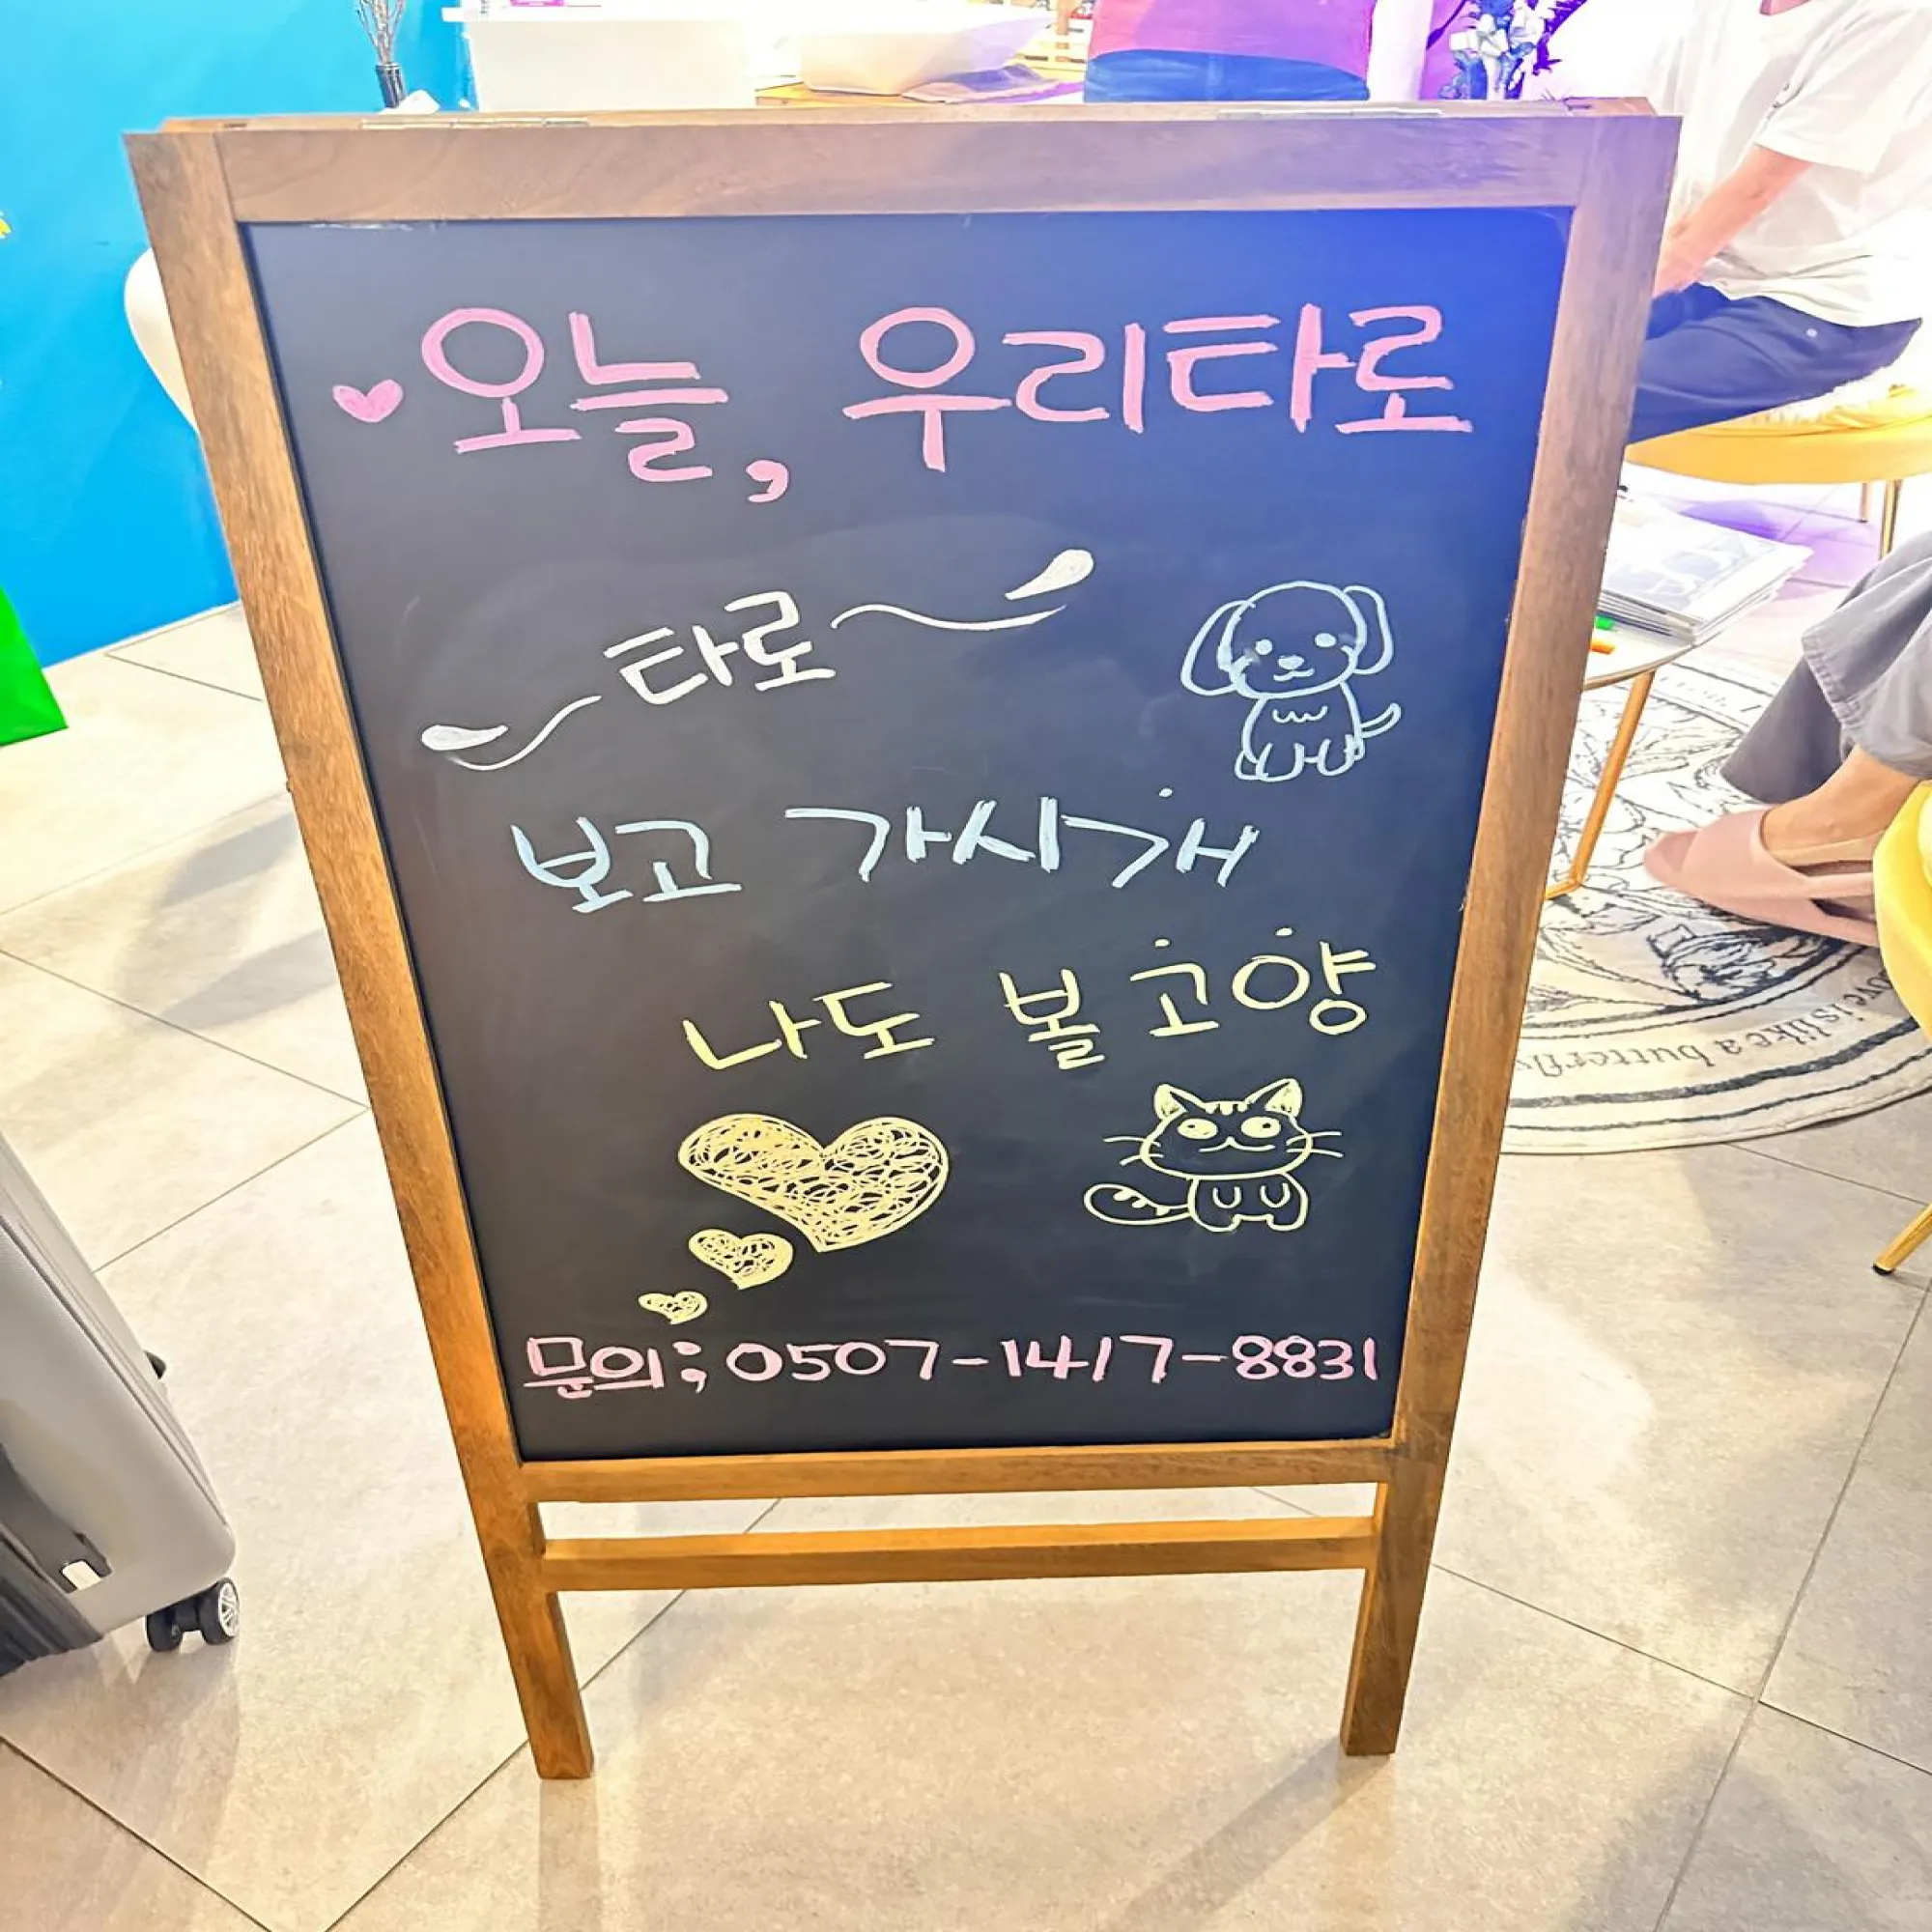 ♥오늘, 우리타로
타로
보고 가시개
나도 볼고양
문의; 0507-1417-8831
love is like a butterfly